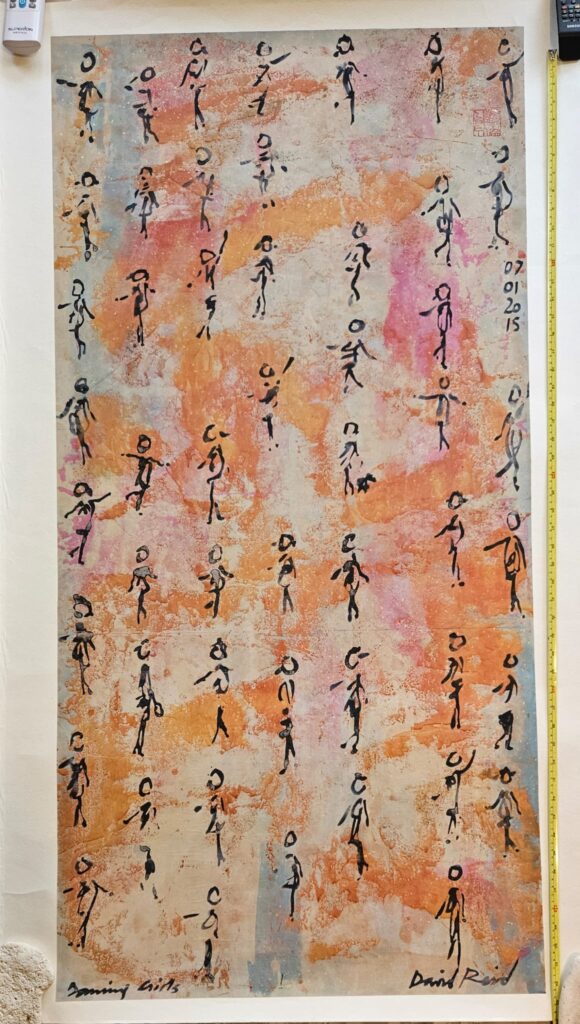 07
01
20
15
Dancing Girls
David Reid